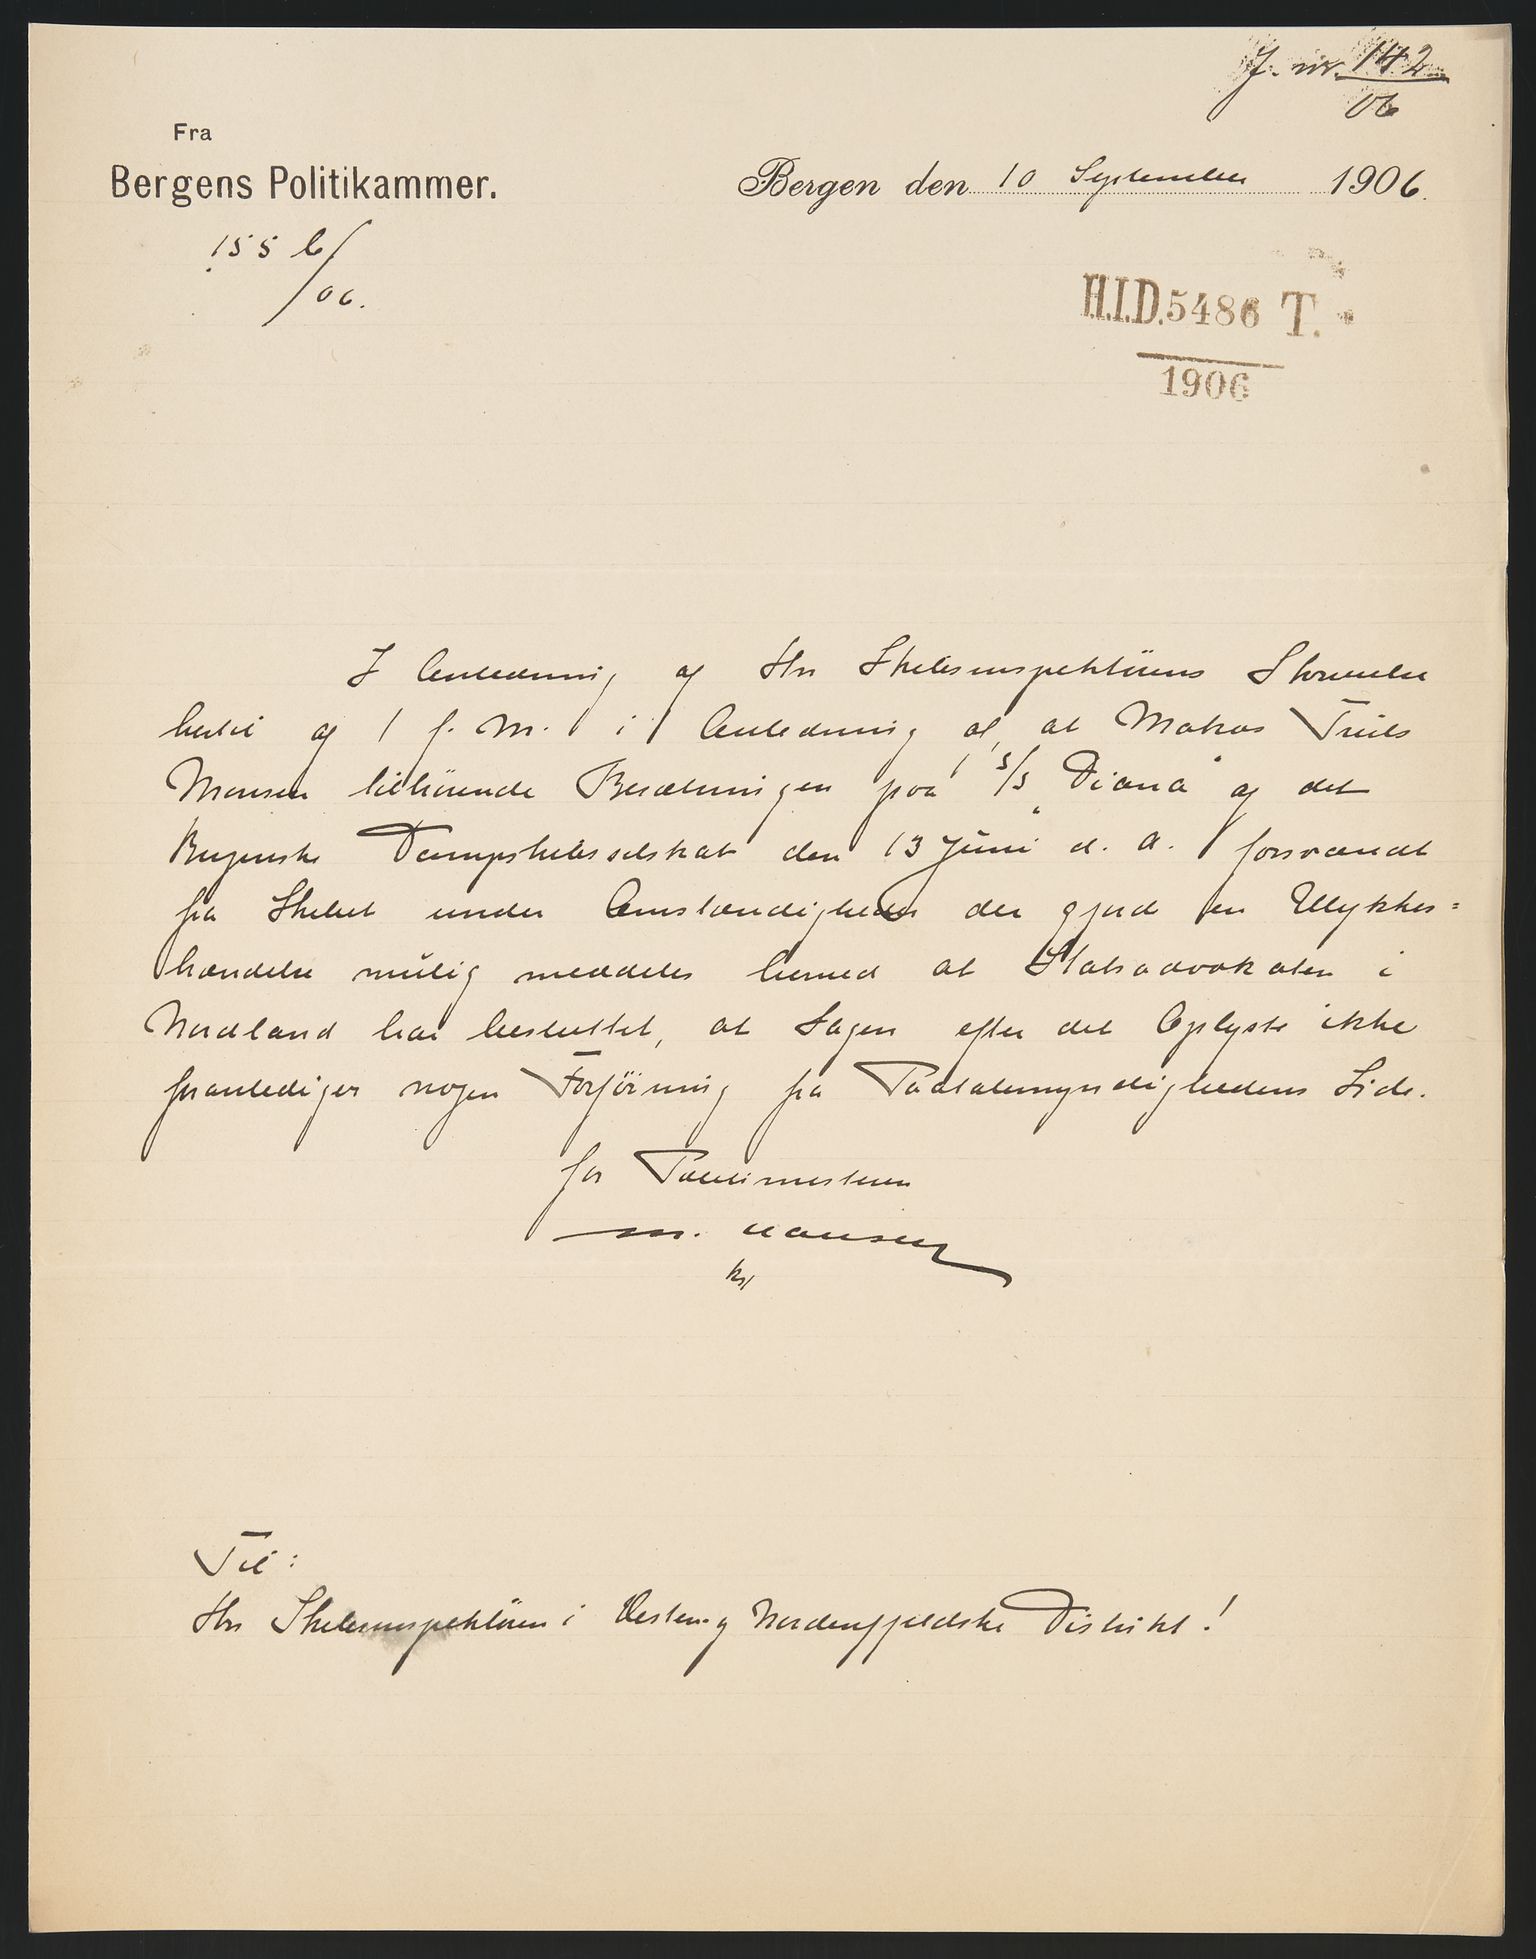 J. nr. 142
06
Fra
Bergens Politikammer.
Bergen den 10 September 1906.
155 b/
/06.
H.I.D. 5486 T.
1906
I Anledning af Hr Skibsinspektörens Skrivelse
hertil af 1 f. M. i Anledning af, at Matros Truls
Monsen tilhörende Besætningen paa s/s "Diana" af det
Bergenske Dampskibsselskab den 13 Juni d. A. forsvandt
fra Skibet under Omstændigheder der gjord en Ulykkes=
hændelse mulig meddeles herved at Statsadvokaten i
Nordland har besluttet, at Sagen efter det Oplyste ikke
foranlediger nogen Forföining fra Paatalemyndighedens Side.
for Politimesteren
M. Hansen
Til:
Hr Skibsinspektören i Vesten- og Nordenfjeldske Distrikt!